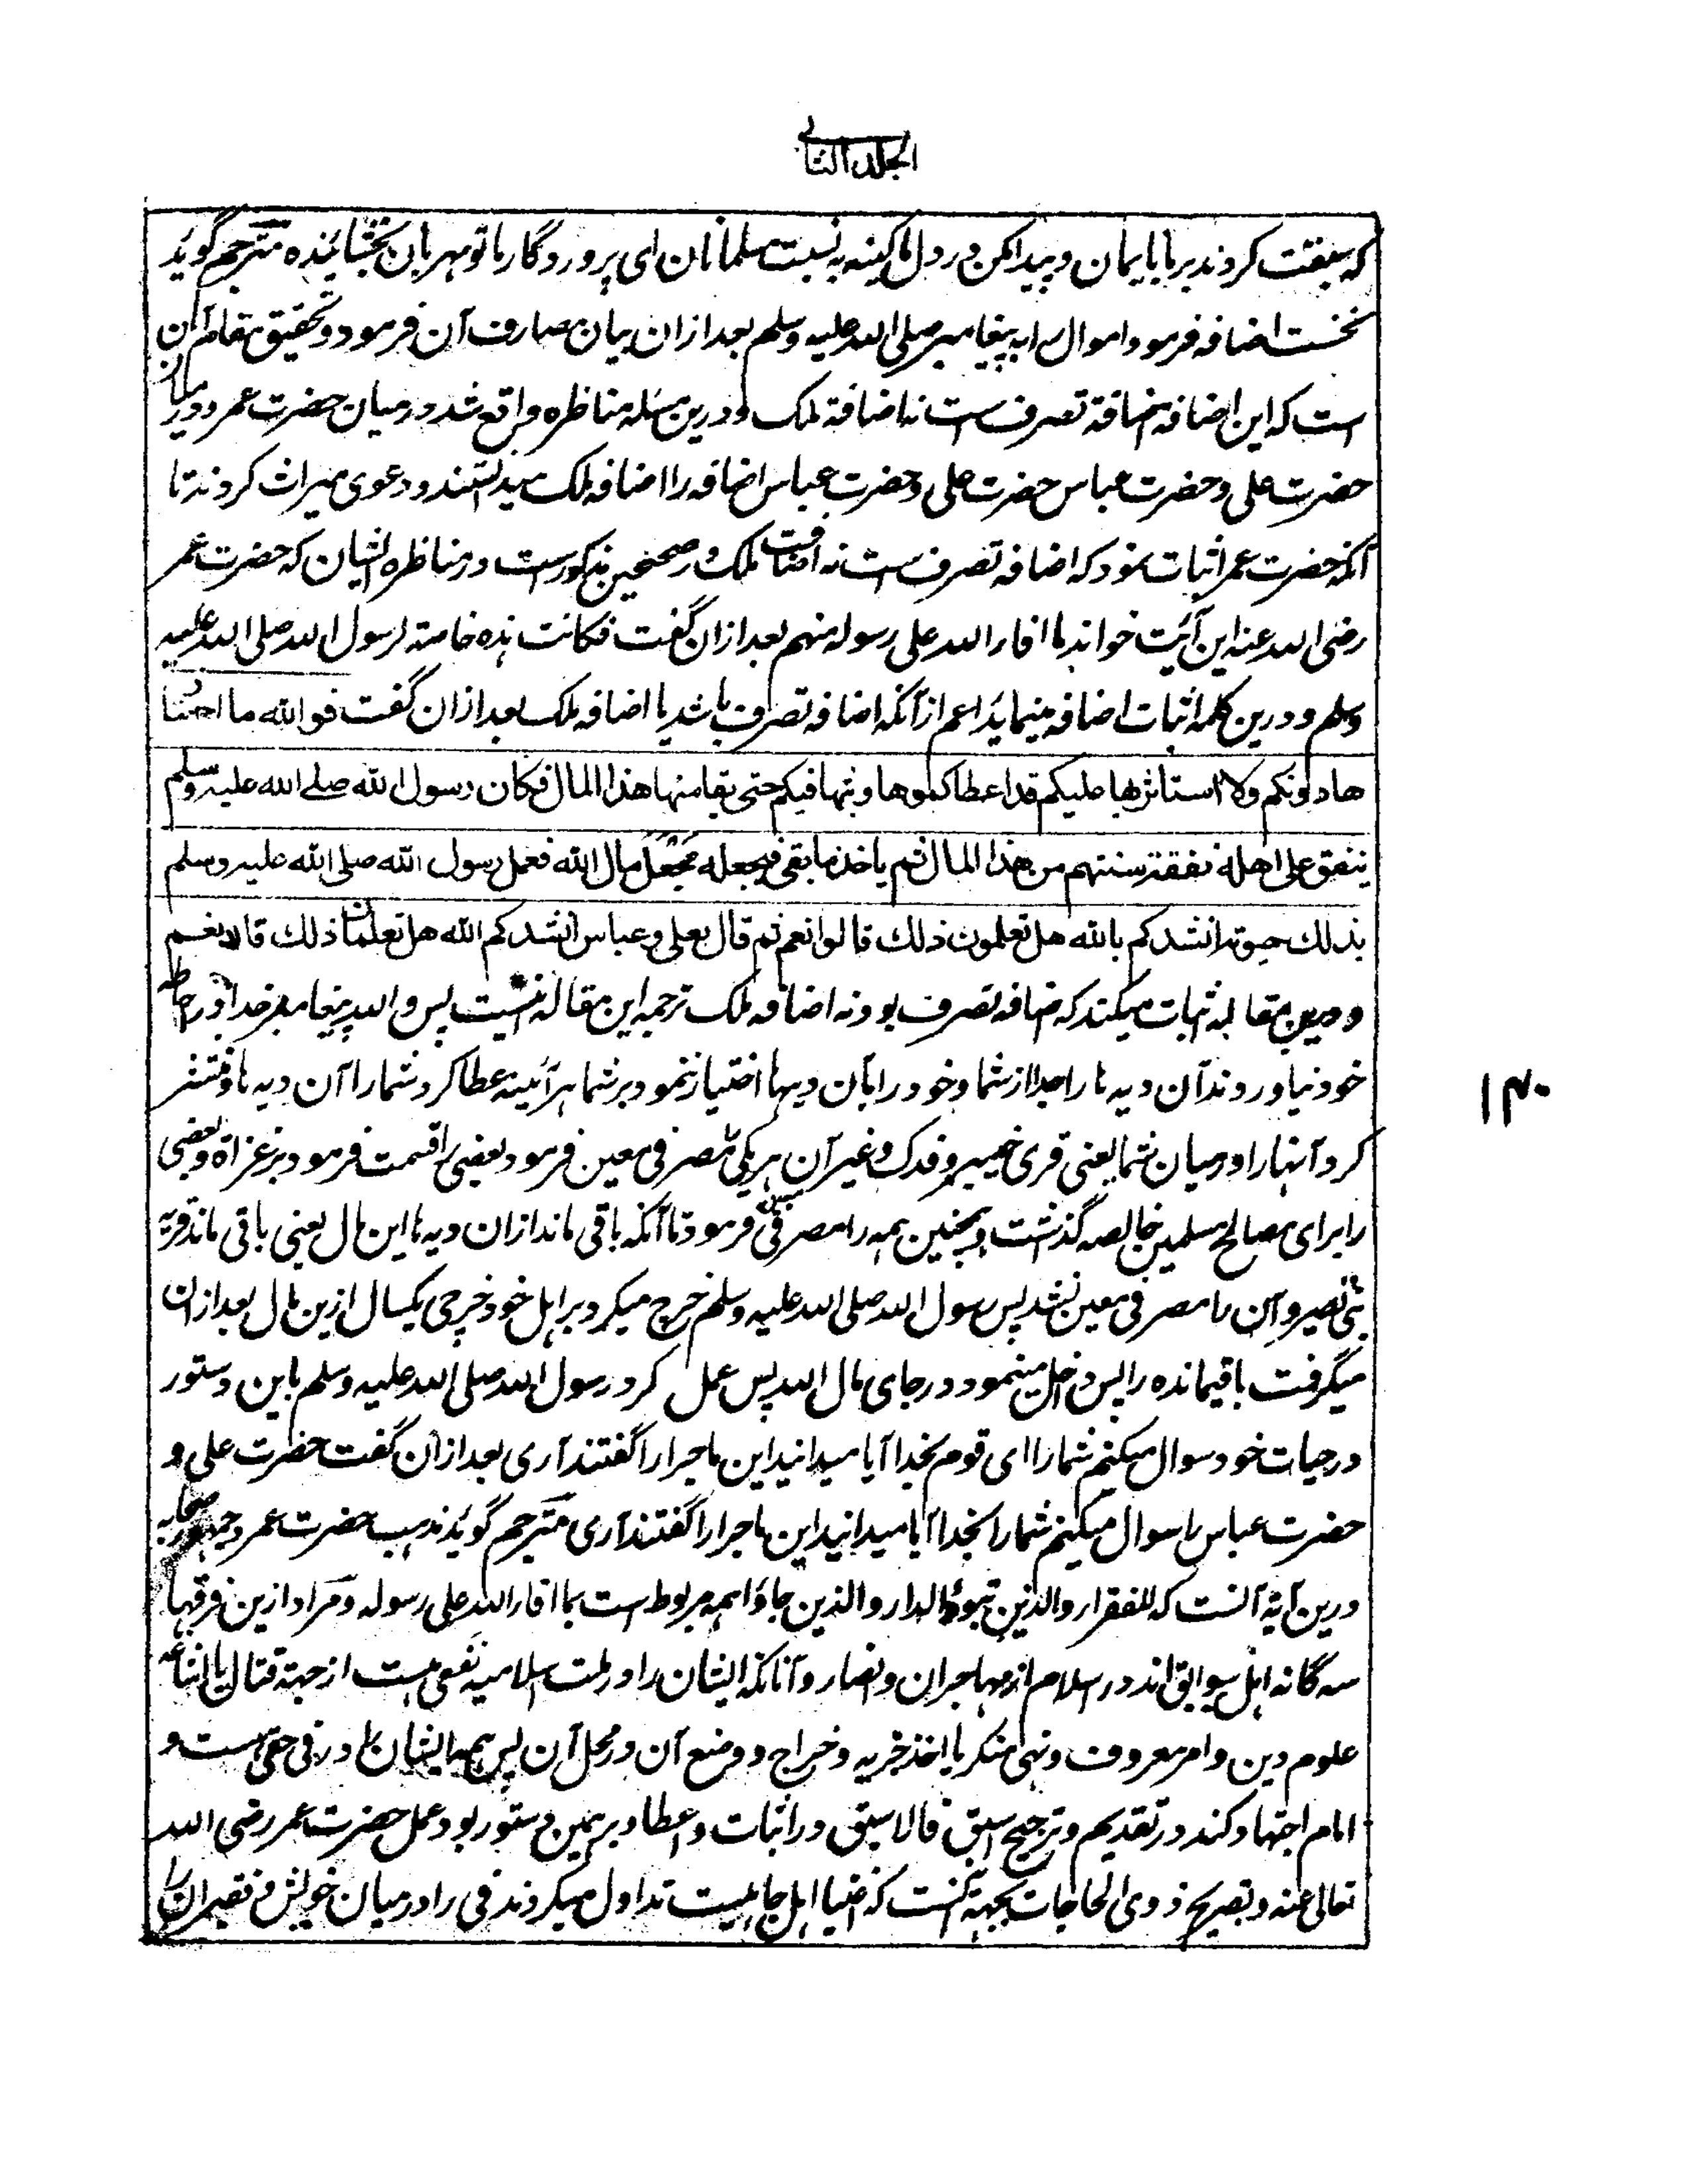 الجلد الثانی
که سبقت کردند بر ما بایمان و پیدا مکن در دل ما کینه به نسبت مسلمانان ای پروردگار ما تو مهربان بخشاینده مترجم گوید
نخست اضافه فرمود اموال را به پیغامبر صلی الله علیه وسلم بعد ازان بیان مصارف آن فرمود و تحقیق مقام آن
است که این اضافه اضافة تصرف است نه اضافة ملک و درین مسئله مناظره واقع شد درمیان حضرت عمر و درمیان
حضرت علی و حضرت عباس حضرت علی و حضرت عباس اضافه را اضافه ملک میدانستند و دعوی میراث کردند تا
آنکه حضرت عمر اثبات نمود که اضافه تصرف است نه اضافت ملک در صحیحین مذکورست در مناظره ایشان که حضرت عمر
رضی الله عنه این آیت خواند ما افاء الله علی رسوله منهم بعد ازان گفت فکانت هذه خاصة لرسول الله صلی الله علیه
وسلم و درین کلمه اثبات اضافه مینماید اعم از آنکه اضافه تصرف باشد یا اضافه ملک بعد ازان گفت فوالله ما احتنا
ها دونکم ولا استاثر بها علیکم قد اعطاکموها وبثها فیکم حتی بقا منها هذا المال فکان رسول الله صلے الله علیه وسلم
ینفق علی اهله نفقة سنتهم من هذا المال ثم یاخذ ما بقی فیجعله مجعل مال الله فعمل رسول الله صلی الله علیه وسلم
بذلك حیوته انشدکم بالله هل تعلمون ذلك قالوا نعم ثم قال لعلی وعباس انشدکم الله هل تعلمان ذلك قالا نعم
و درین مقاله اثبات میکند که اضافه تصرف بود نه اضافه ملک ترجمه این مقاله اینست پس والله پیغامبر خدا در احاطه
خود نیاوردند آن دیه ها را جدا از شما و خود را بآن دیها اختیار ننمود بر شما هر آئینه عطا کرد شما را آن دیه ها و منتشر
کرد آنها را درمیان شما یعنی قری خیبر و فدک و غیر آن هر یکی را مصرفی معین فرمود بعضی را قسمت فرمود بر غزاة و بعضی
را برای مصالح مسلمین خالصه گذاشت و همچنین همه را مصرفی معین فرمود تا آنکه باقی ماند ازان دیه ها این مال یعنی باقی ماند قریه
بنی نضیر و آن را مصرفی معین نشد پس رسول الله صلی الله علیه وسلم خرج میکرد بر اهل خود خرچی یکسال ازین مال بعد ازان
میگرفت باقیمانده را پس داخل مینمود در جای مال الله پس عمل کرد رسول الله صلی الله علیه وسلم باین دستور
در حیات خود سوال میکنم شما را ای قوم بخدا آیا میدانید این ماجرا را گفتند آری بعد ازان گفت حضرت علی و
حضرت عباس را سوال میکنم شما را بخدا آیا میدانید این ماجرا را گفتند آری مترجم گوید مذهب حضرت عمر و جمهور صحابه
درین آیه آنست که للفقراء والذین تبوؤا الدار والذین جاؤا همه مربوط است بما افاء الله علی رسوله و مراد ازین فرقها
سه گانه اهل سوابق اند در اسلام از مهاجران و انصار و آنانکه ایشان را در ملت اسلامیه نفعی هست از جهة قتال یا اشاعه
علوم دین و امر معروف و نهی منکر یا اخذ جزیه و خراج و وضع آن در محل آن پس همه ایشان را در فی حقی هست و
امام اجتهاد کند در تقدیم و ترجیح اسبق فالاسبق در اثبات و اعطا و بر همین دستور بود عمل حضرت عمر رضی الله
تعالی عنه و تصریح ذوی الحاجات بجهة آنست که اغنیا اهل جاهلیت تداول میکردند فی را درمیان خویش و فقیران را
۱۴۰